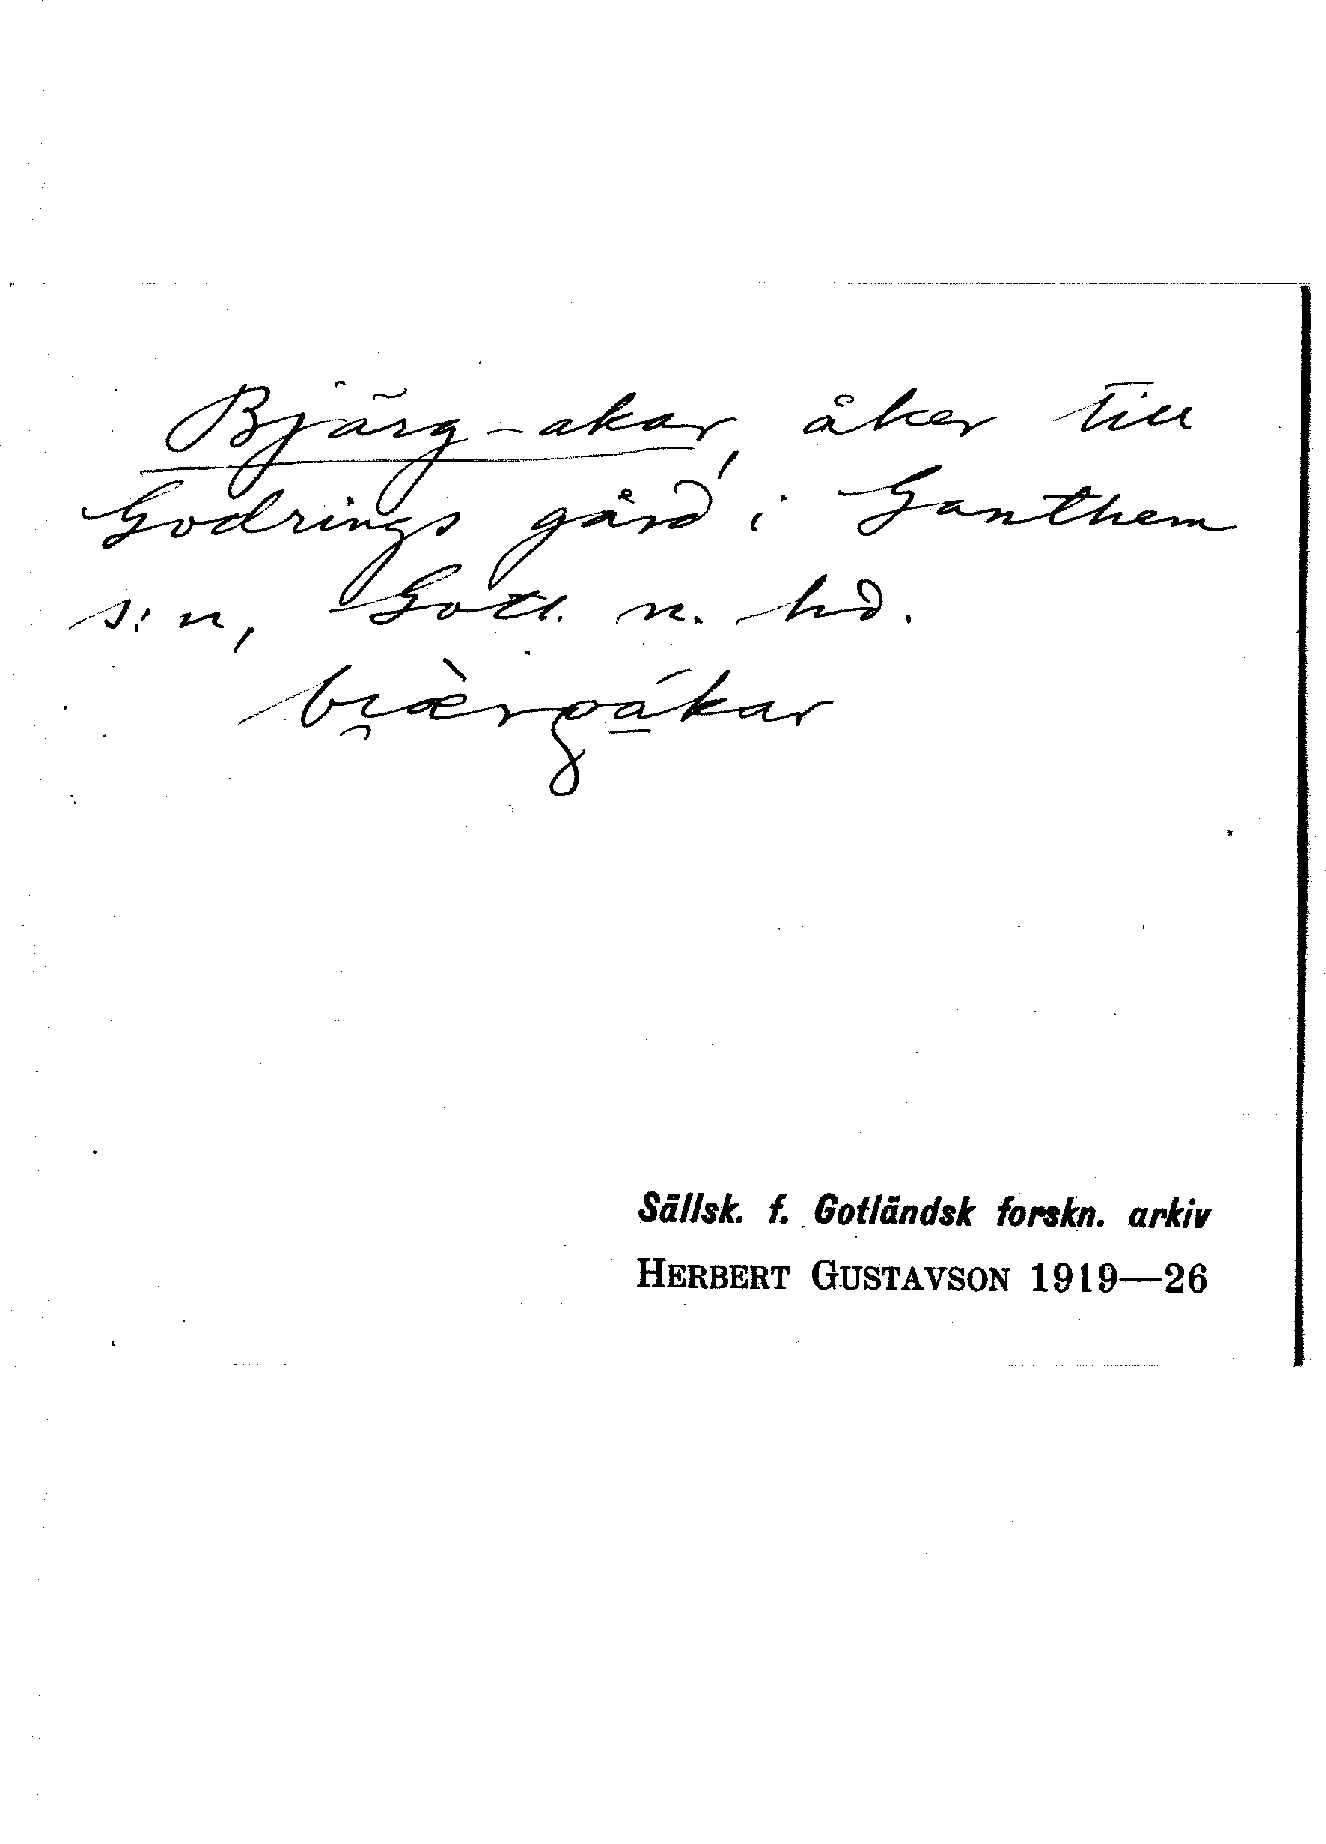 Bjärg-akar, åker till
Godrings gård i Ganthem
s:n, Gotl. n. hd.
bi̯æ̀rgákar
Sällsk. f. Gotländsk forskn. arkiv
HERBERT GUSTAVSON 1919—26